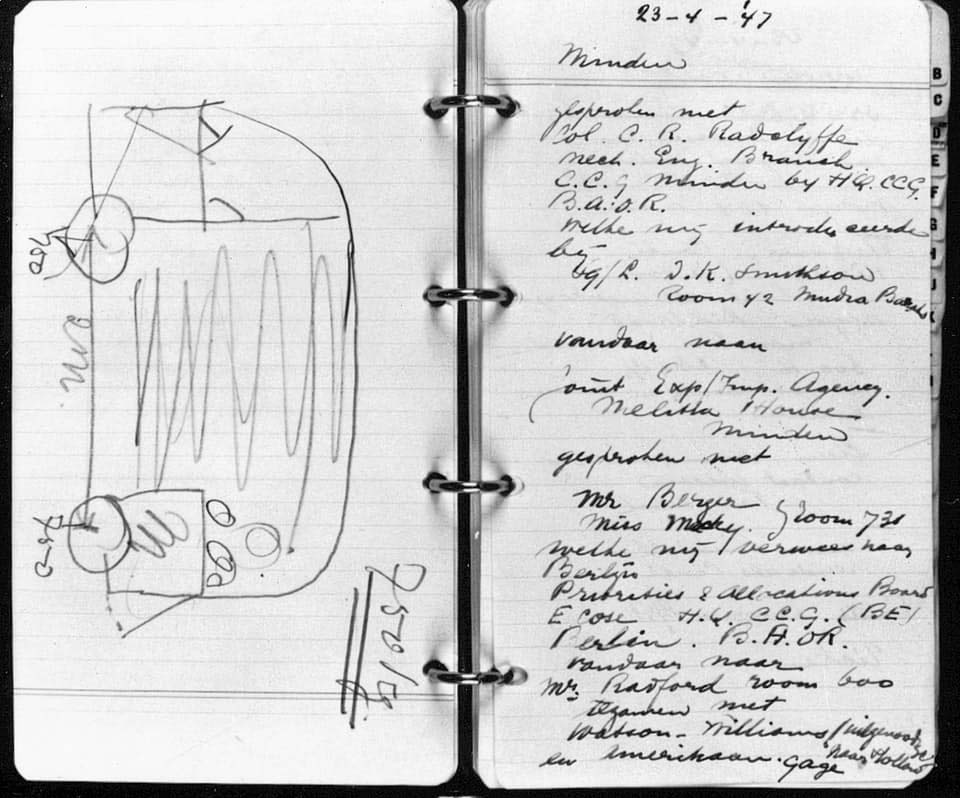 750
2 M.
750
750 kg
23-4-'47
Minden
gesproken met
Col. C. R. Radclyffe
Mech. Eng. Branch.
C.C.G Minden by H.Q. CCG.
B.A.O.R.
welke mij introduceerde
bij
J.K. Smithson
Room 42 Mudra
vandaar naar
Joint Exp/Imp. Agency.
Melitta House
Minden
gesproken met
Mr Berger
Miss Room 738
welke mij verwees naar
Berlijn
Priorities & Allocations Board
Ecosc H.Q. C.C.G. (BE)
Berlin. B.A.OR.
vandaar naar
Mr. Radford room 600
tezamen met
Watson-Williams / uitgenoodigd
naar Holland
en Amerikaan. Gage